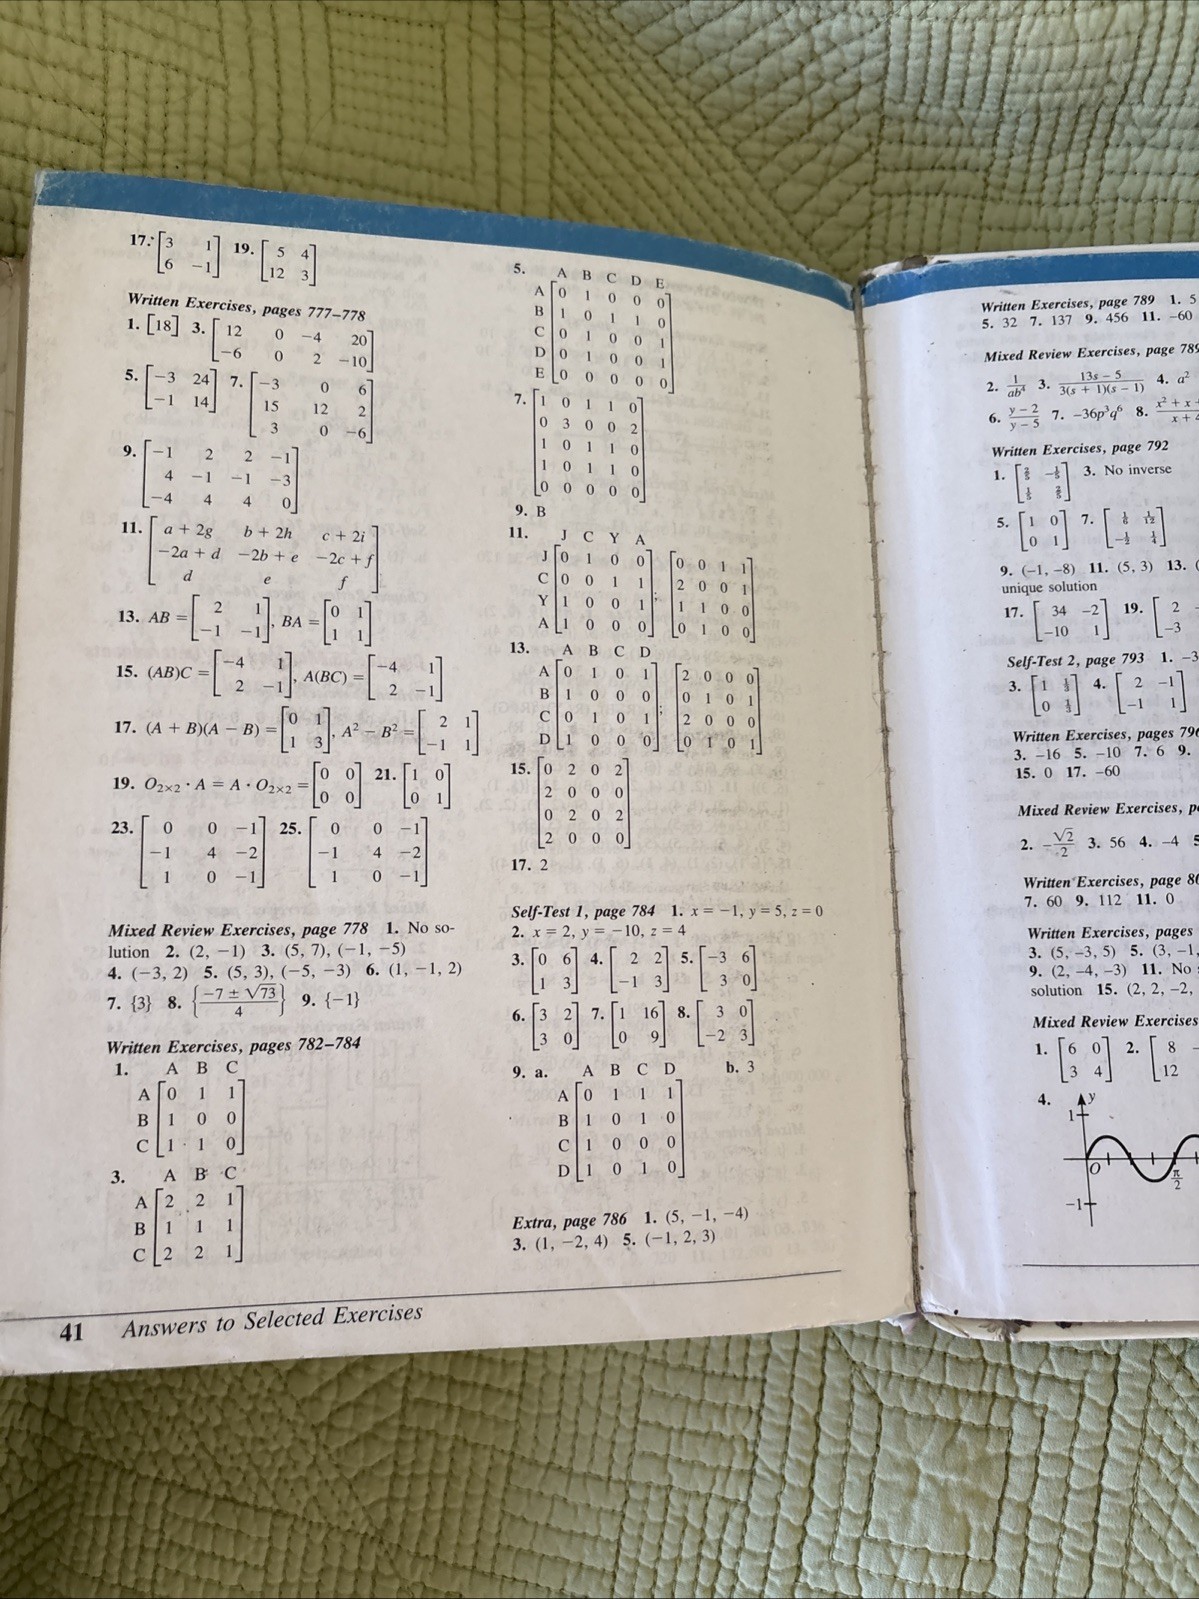 17. [3 1] 19. [5 4]
[6 −1] [12 3]
Written Exercises, pages 777–778
1. [18] 3. [12 0 −4 20]
[−6 0 2 −10]
5. [−3 24] 7. [−3 0 6]
[−1 14] [15 12 2]
[3 0 −6]
9. [−1 2 2 −1]
[4 −1 −1 −3]
[−4 4 4 0]
11. [a + 2g b + 2h c + 2i]
[−2a + d −2b + e −2c + f]
[d e f]
13. AB = [2 1], BA = [0 1]
[−1 −1] [1 1]
15. (AB)C = [−4 1], A(BC) = [−4 1]
[2 −1] [2 −1]
17. (A + B)(A − B) = [0 1], A² − B² = [2 1]
[1 3] [−1 1]
19. O₂ₓ₂ · A = A · O₂ₓ₂ = [0 0] 21. [1 0]
[0 0] [0 1]
23. [0 0 −1] 25. [0 0 −1]
[−1 4 −2] [−1 4 −2]
[1 0 −1] [1 0 −1]
Mixed Review Exercises, page 778 1. No so-
lution 2. (2, −1) 3. (5, 7), (−1, −5)
4. (−3, 2) 5. (5, 3), (−5, −3) 6. (1, −1, 2)
7. {3} 8. {(−7 ± √73)/4} 9. {−1}
Written Exercises, pages 782–784
1. A B C
A [0 1 1]
B [1 0 0]
C [1 1 0]
3. A B C
A [2 2 1]
B [1 1 1]
C [2 2 1]
41 Answers to Selected Exercises
5. A B C D E
A [0 1 0 0 0]
B [1 0 1 1 0]
C [0 1 0 0 1]
D [0 1 0 0 1]
E [0 0 0 0 0]
7. [1 0 1 1 0]
[0 3 0 0 2]
[1 0 1 1 0]
[1 0 1 1 0]
[0 0 0 0 0]
9. B
11. J C Y A
J [0 1 0 0] [0 0 1 1]
C [0 0 1 1] [2 0 0 1]
Y [1 0 0 1]; [1 1 0 0]
A [1 0 0 0] [0 1 0 0]
13. A B C D
A [0 1 0 1] [2 0 0 0]
B [1 0 0 0] [0 1 0 1]
C [0 1 0 1]; [2 0 0 0]
D [1 0 0 0] [0 1 0 1]
15. [0 2 0 2]
[2 0 0 0]
[0 2 0 2]
[2 0 0 0]
17. 2
Self-Test 1, page 784 1. x = −1, y = 5, z = 0
2. x = 2, y = −10, z = 4
3. [0 6] 4. [2 2] 5. [−3 6]
[1 3] [−1 3] [3 0]
6. [3 2] 7. [1 16] 8. [3 0]
[3 0] [0 9] [−2 3]
9. a. A B C D b. 3
A [0 1 1 1]
B [1 0 1 0]
C [1 0 0 0]
D [1 0 1 0]
Extra, page 786 1. (5, −1, −4)
3. (1, −2, 4) 5. (−1, 2, 3)
Written Exercises, page 789 1. 5
5. 32 7. 137 9. 456 11. −60
Mixed Review Exercises, page 789
2. 1/ab⁴ 3. (13s − 5)/(3(s + 1)(s − 1)) 4. a²
6. (y − 2)/(y − 5) 7. −36p³q⁶ 8. x² + x +
x +
Written Exercises, page 792
1. 3. No inverse
5. [1 0] 7. [1/6 1/12]
[0 1] [−1/2 1/4]
9. (−1, −8) 11. (5, 3) 13.
unique solution
17. [34 −2] 19. [2
[−10 1] [−3
Self-Test 2, page 793 1. −3
3. [1 1/3] 4. [2 −1]
[0 1/3] [−1 1]
Written Exercises, pages 796
3. −16 5. −10 7. 6 9.
15. 0 17. −60
Mixed Review Exercises,
2. −√2/2 3. 56 4. −4 5
Written Exercises, page
7. 60 9. 112 11. 0
Written Exercises, pages
3. (5, −3, 5) 5. (3, −1,
9. (2, −4, −3) 11. No
solution 15. (2, 2, −2,
Mixed Review Exercises
1. [6 0] 2. [8
[3 4] [12
4. y
1
O π/2
−1